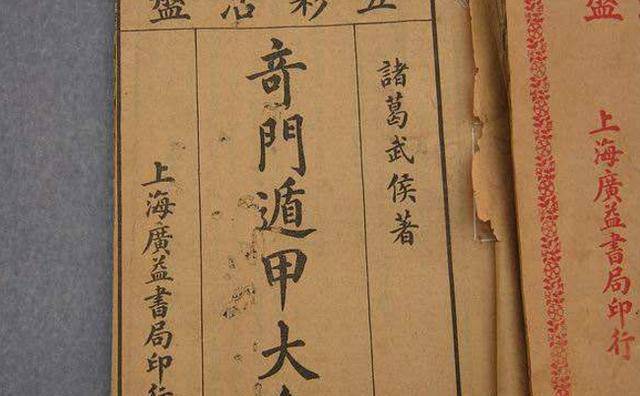 上海廣益書局印行
彩
諸葛武侯著
奇門遁甲大
上海廣益書局印行